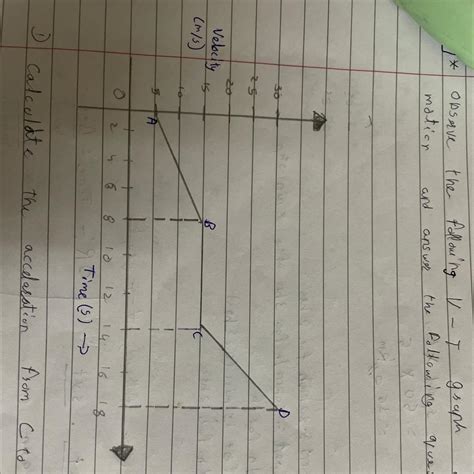 1* Observe the following V-T graph
motion and answer the following
30
D
25
20
Velocity
(m/s)
15
B
C
10
5
A
0
2 4 6 8 10 12 14 16 18
Time (s) →
1) Calculate the acceleration from C to